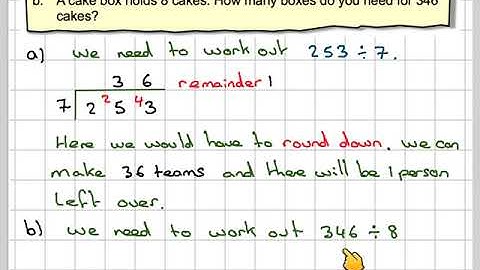 b. A cake box holds 8 cakes. How many boxes do you need for 346
cakes?
a) We need to work out 253 ÷ 7.
3 6 remainder 1
7 2 ²5 ⁴3
Here we would have to round down. We can
make 36 teams and there will be 1 person
left over.
b) We need to work out 346 ÷ 8